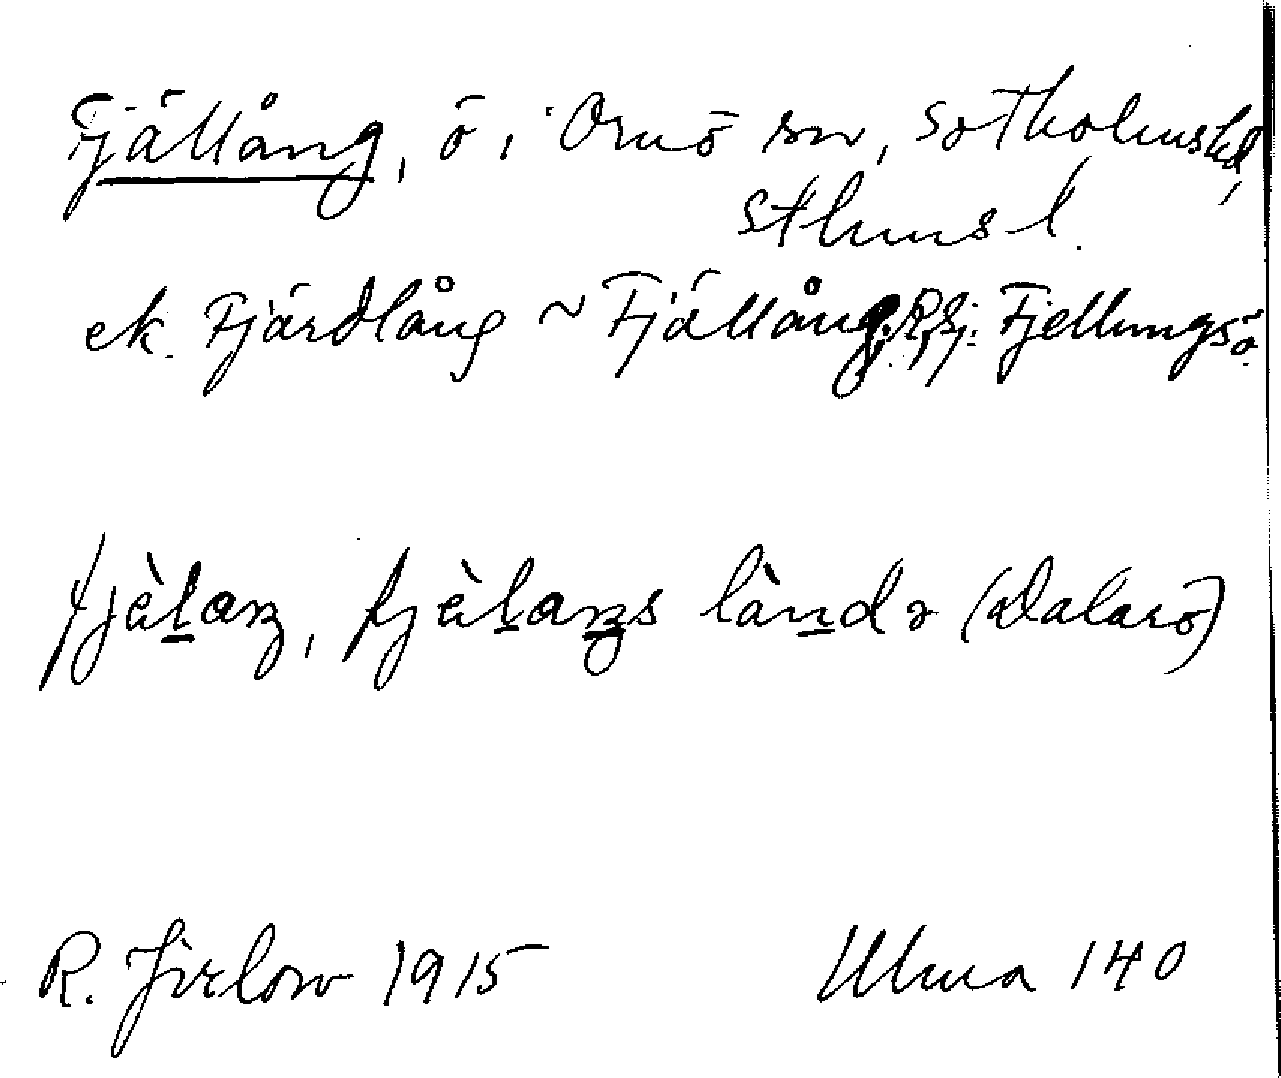 Fjällång, ö i Ornö sn, Sotholms hd,
Sthms l.
ek. Fjärdlång ~ Fjällång. Rj: Fjellungsö.
fjèḻaŋ, fjèḻaŋs làṉdə (Dalarö)
R. Jirlow 1915 Ulma 140